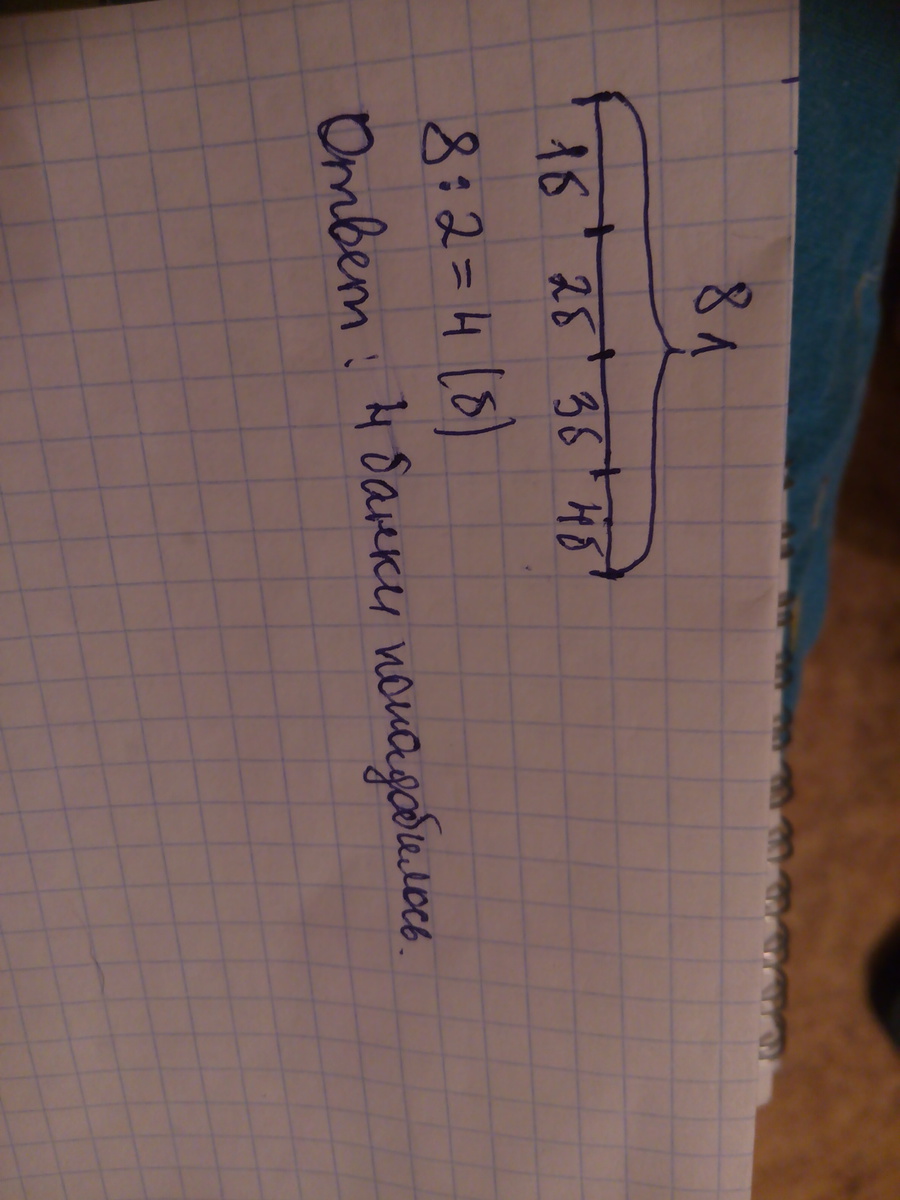 8 л
1б 2б 3б 4б
8 : 2 = 4 (б)
Ответ: 4 банки понадобилось.